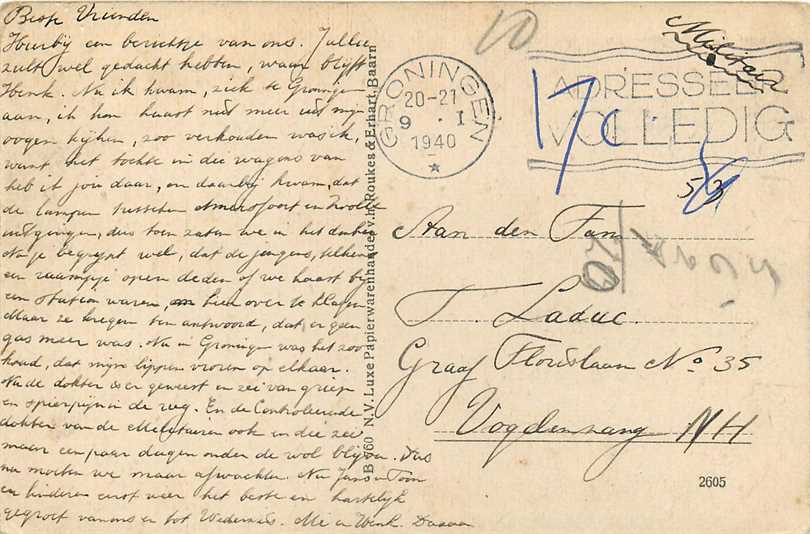 Beste Vrienden
Hierbij een berichtje van ons. Jullie
zult wel gedacht hebben, waar blijft
Henk. Nu ik kwam, ziek te Groningen
aan, ik kon haast niet meer uit mijn
oogen kijken, zoo verkouden was ik,
want het tochte in die wagons van
heb ik jou daar, en daarbij kwam, dat
de lampen tusschen Amersfoort en Zwolle
uitgingen, dus toen zaten we in het donker
Nu je begrijpt wel, dat de jongens, telkens
een raampje open deden of we haast bij
een station waren, en hier over te klagen
Maar ze kregen ten antwoord, dat er geen
gas meer was. Nu in Groningen was het zoo
koud, dat mijn lippen vroren op elkaar.
Nu de dokter is er geweest en zei van griep
en spierpijn in de rug. En de Controleerende
dokter van de Militairen ook en die zei
maar een paar dagen onder de wol blijven. Dus
nu moeten we maar afwachten. Nu Jans en Toon
en kinderen eerst weer het beste en hartelijk
gegroet van ons en tot Wederziens. Mi en Henk.
B 760 N.V. Luxe Papierwarenhandel v.h. Roukes & Erhart, Baarn
10
Militair
GRONINGEN
20-21
9 . I
1940
ADRESSEER
VOLLEDIG
17 c
53
Aan den Fam
T. Laduc.
Graaf Florislaan No 35
Vogelenzang NH
20
2605